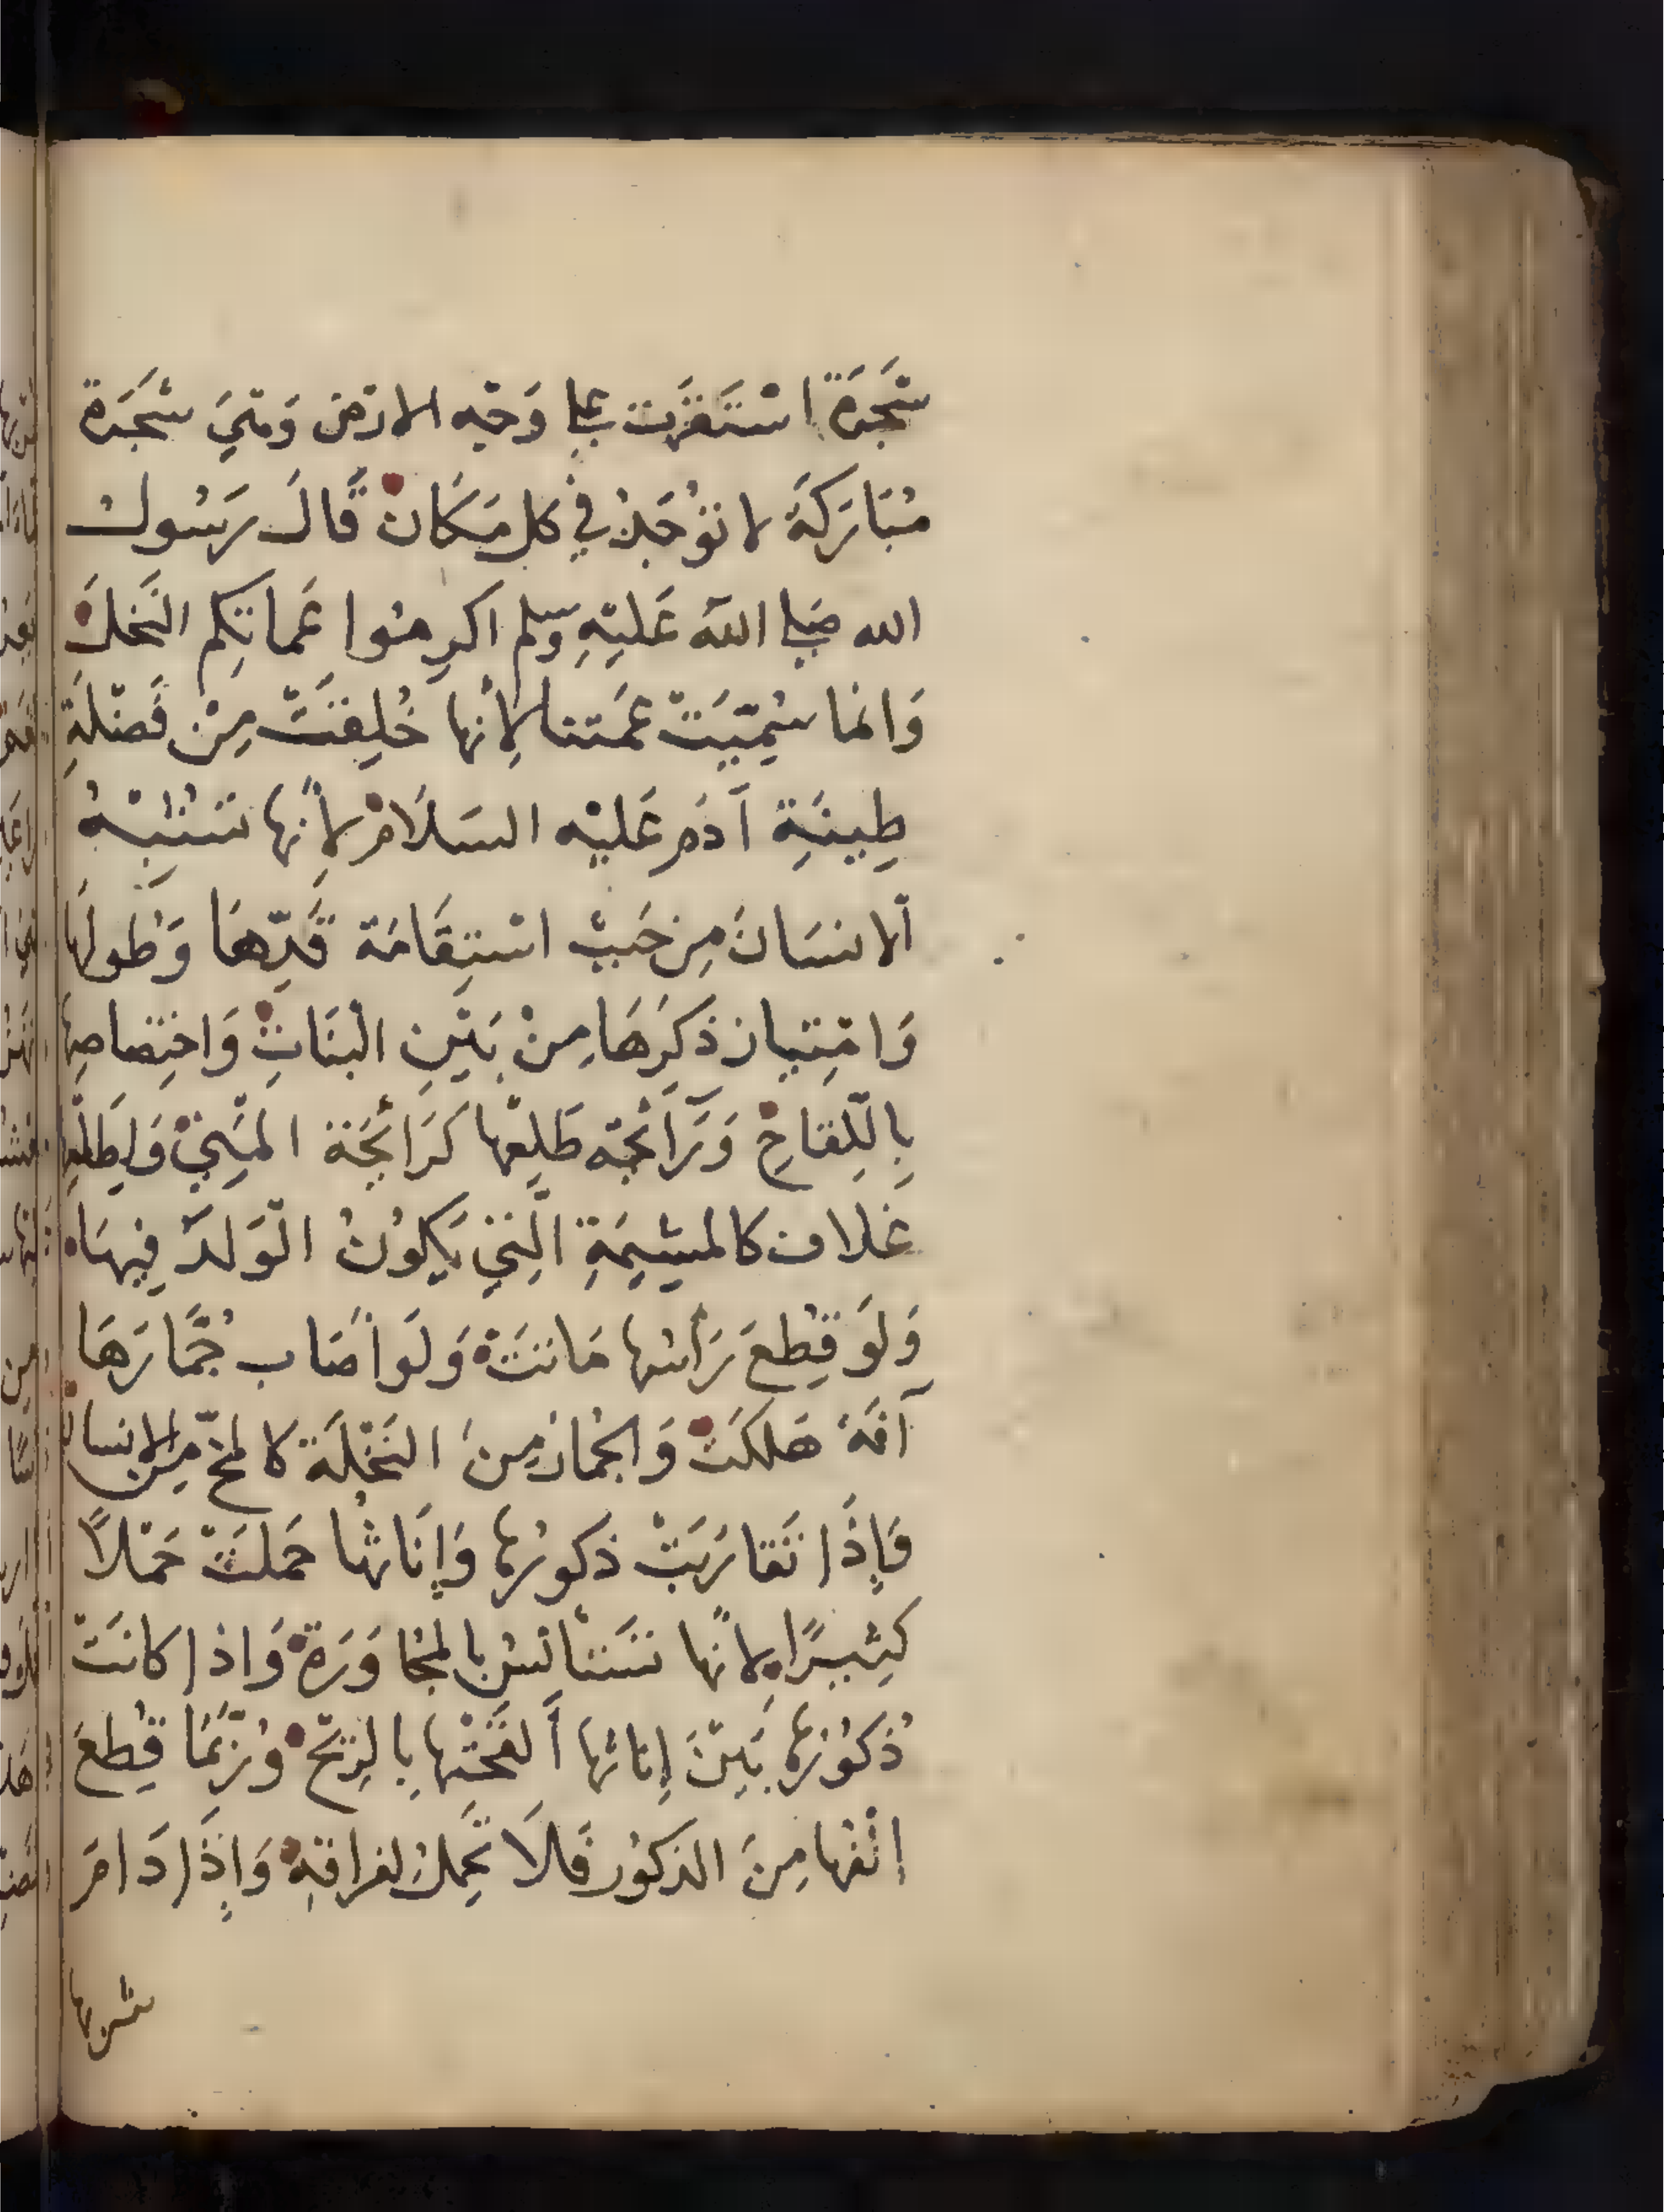 شَجَرَة اسْتَقَرَت على وَجْه الارْض وَهيَ شَجَرَة
مُبَارَكَة لا تُوْجَدُ في كل مَكَان قَالَ رَسُول
الله صَلى الله عَليْهِ وسلم اكرِمُوا عَماتِكم النَخلَ
وَانما سُمِّيَتْ عَمَتنا لِأنها خُلِقَتْ مِنْ فَضْلَةِ
طِينَةِ آدَمَ عَليْه السَلَامْ لِأنها تَشْبِهُ
ألانسَانَ مِن حَيثْ اسْتِقَامَة قَدِّهَا وَطُولهَا
وَامْتِيَاز ذكَرِهَا مِنْ بَيْنِ النَبَاتِ وَاخْتِصاصِها
بِاللِّقاحِ وَرَائحَة طَلعِها كَرَائحَة المَنِيّ وَلِطَلْعِها
غلاف كالمشِيمَةِ الَّتي يَكُونُ الوَلدُ فِيهَا
وَلَو قُطِعَ رَأسها مَاتَتْ وَلَو أصَاب جُمَّارَهَا
آفَة هَلكَتْ وَالجُمار مِنَ النَخْلَة كالمخّ مِن الانسان
فَإِذَا تَقارَبَتْ ذكورُها وَإِنَاثها حَملتْ حَمْلًا
كَثِيرًا لأنها تَسْتأنسُ بالمجَاوَرَة وَاذا كانَتْ
ذُكُورُها بَيْنَ إناثها ألقَحَتْها بِالرِيْح وُرُبَّمَا قُطِعَ
الفها مِنَ الذكُور فَلَا تَحمِلُ لفراقهِ وَإذَا دَامَ
شربها